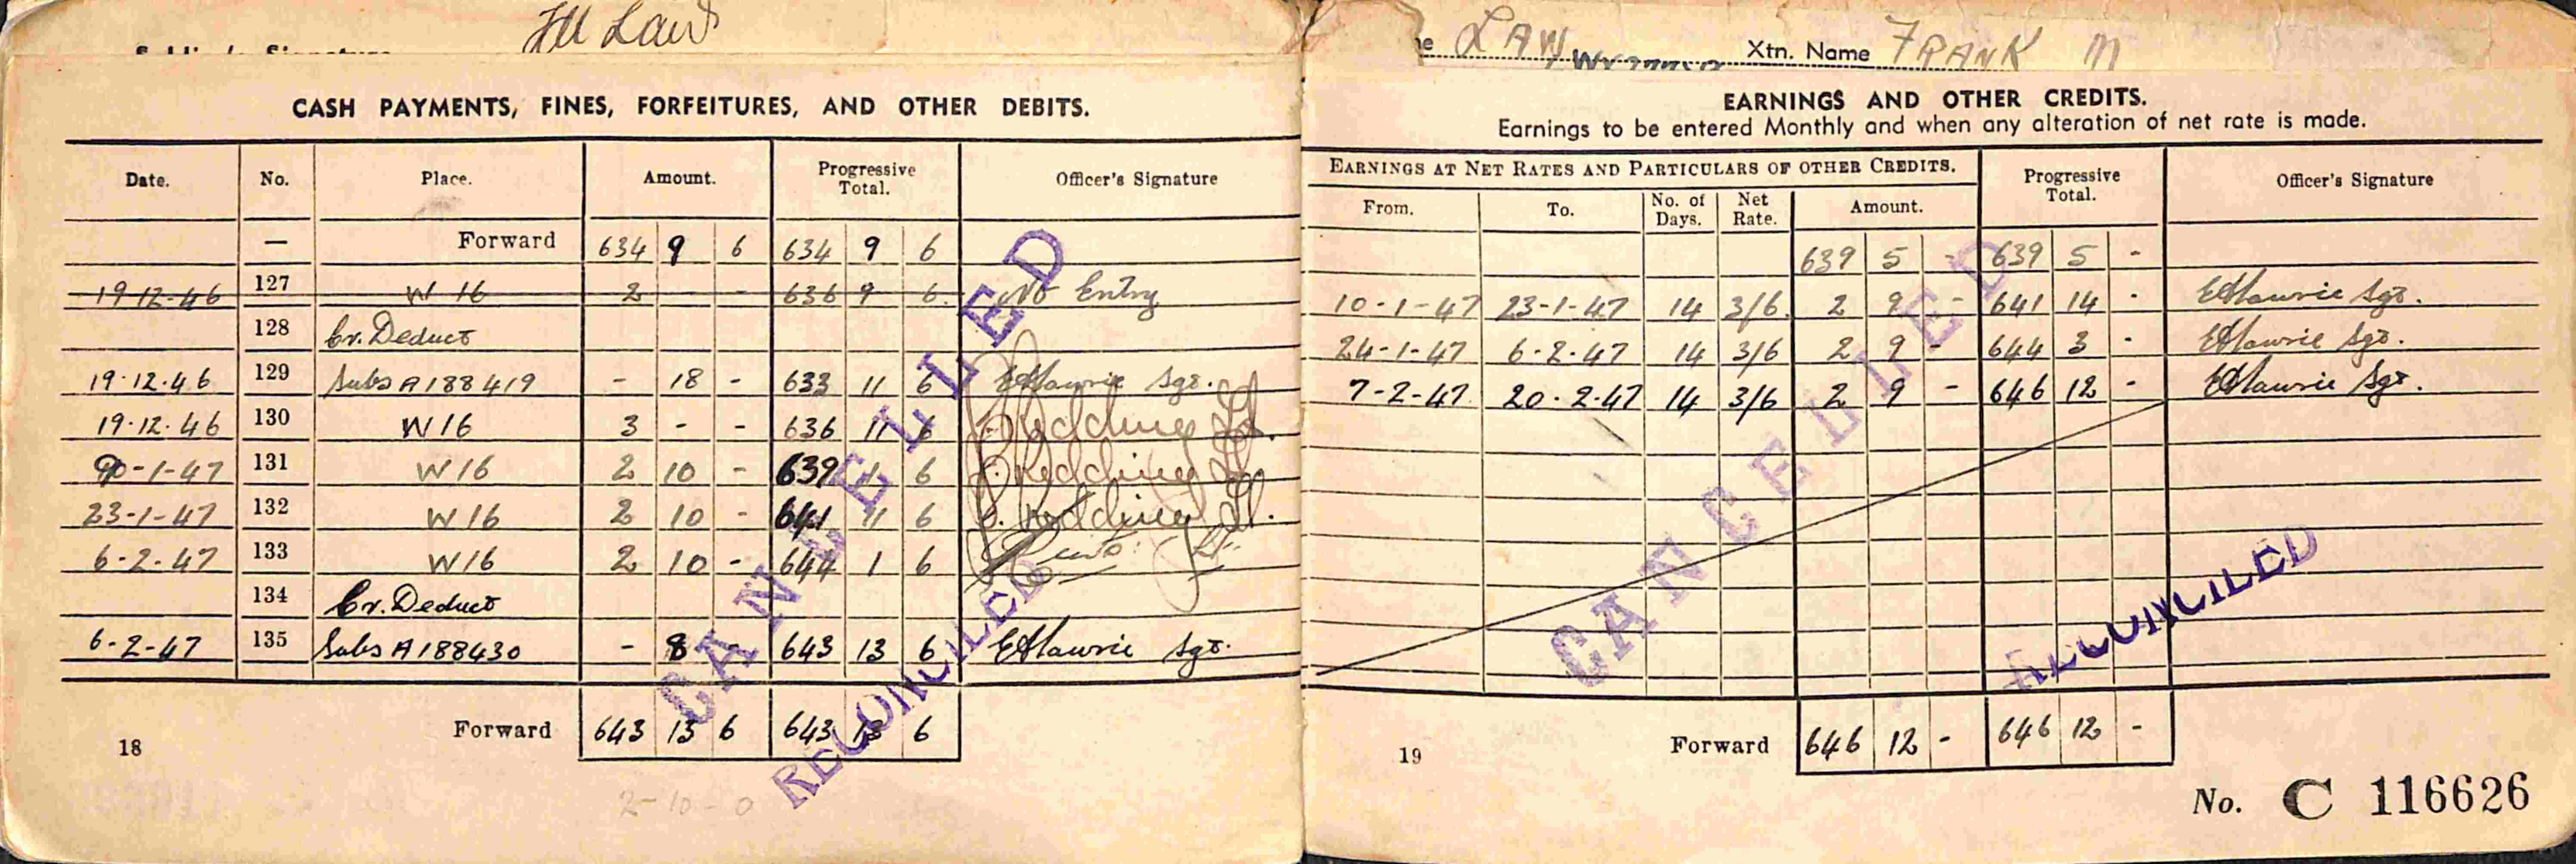 FM Law
LAW
Xtn. Name FRANK M
CASH PAYMENTS, FINES, FORFEITURES, AND OTHER DEBITS.
Date. No. Place. Amount. Progressive Total. Officer's Signature
— Forward 634 9 6 634 9 6
19-12-46 127 W 16 2 - - 636 9 6 No Entry
128 Cr. Deduct
19.12.46 129 Subs A188419 - 18 - 633 11 6 Sgt.
19.12.46 130 W16 3 - - 636 11 6 Redding Lt.
-1-47 131 W16 2 10 - 639 1 6 Redding Lt
23-1-47 132 W16 2 10 - 641 11 6 Redding Lt.
6-2-47 133 W16 2 10 - 644 1 6 Lt.
134 Cr. Deduct
6-2-47 135 Subs A188430 - 8 - 643 13 6 Sgt.
Forward 643 13 6 643 13 6
18
2-10-0
CANCELLED
RECONCILED
EARNINGS AND OTHER CREDITS.
Earnings to be entered Monthly and when any alteration of net rate is made.
EARNINGS AT NET RATES AND PARTICULARS OF OTHER CREDITS. Progressive Total. Officer's Signature
From. To. No. of Days. Net Rate. Amount.
639 5 - 639 5 -
10-1-47 23-1-47 14 3/6 2 9 - 641 14 - Sgt.
24-1-47 6-2-47 14 3/6 2 9 - 644 3 - Sgt.
7-2-47 20.2.47 14 3/6 2 9 - 646 12 - Sgt.
CANCELLED
RECONCILED
Forward 646 12 - 646 12 -
19
No. C 116626